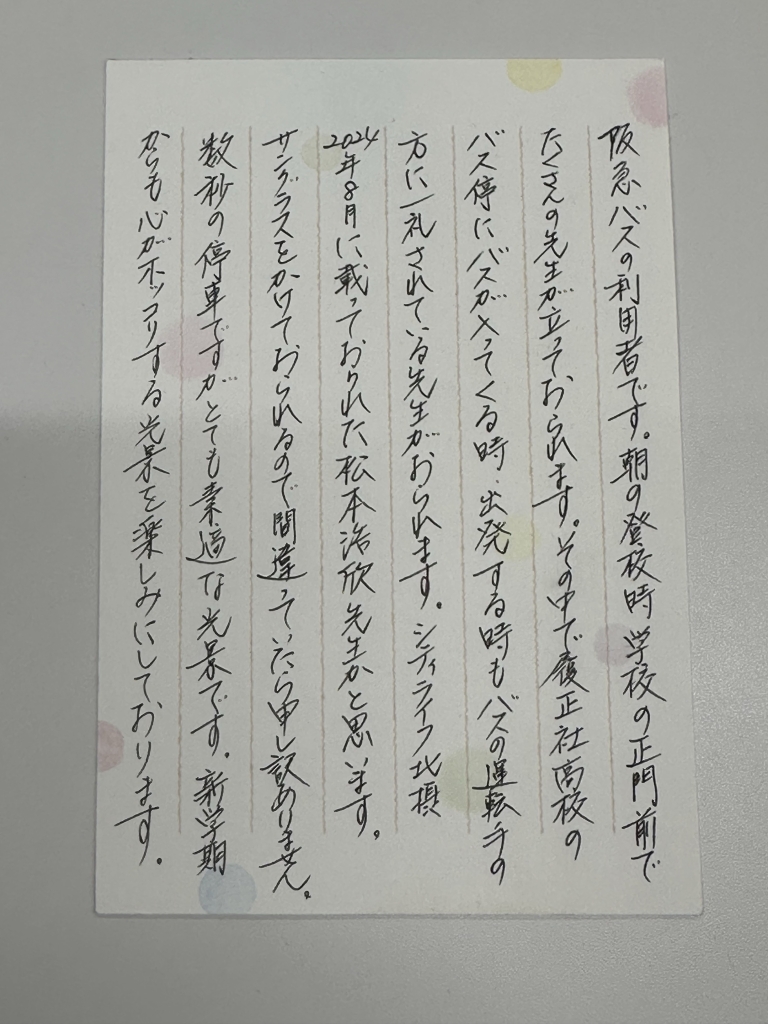 阪急バスの利用者です。朝の登校時学校の正門前で
たくさんの先生が立っておられます。その中で履正社高校の
バス停にバスが入ってくる時、出発する時もバスの運転手の
方に一礼されている先生がおられます。シティライフ北摂
2024年8月に載っておりれた松本浩欣先生かと思います。
サングラスをかけておられるので間違っていたら申し訳ありません。
数秒の停車ですがとても素適な光景です。新学期
からも心がホッコリする光景を楽しみにしております。